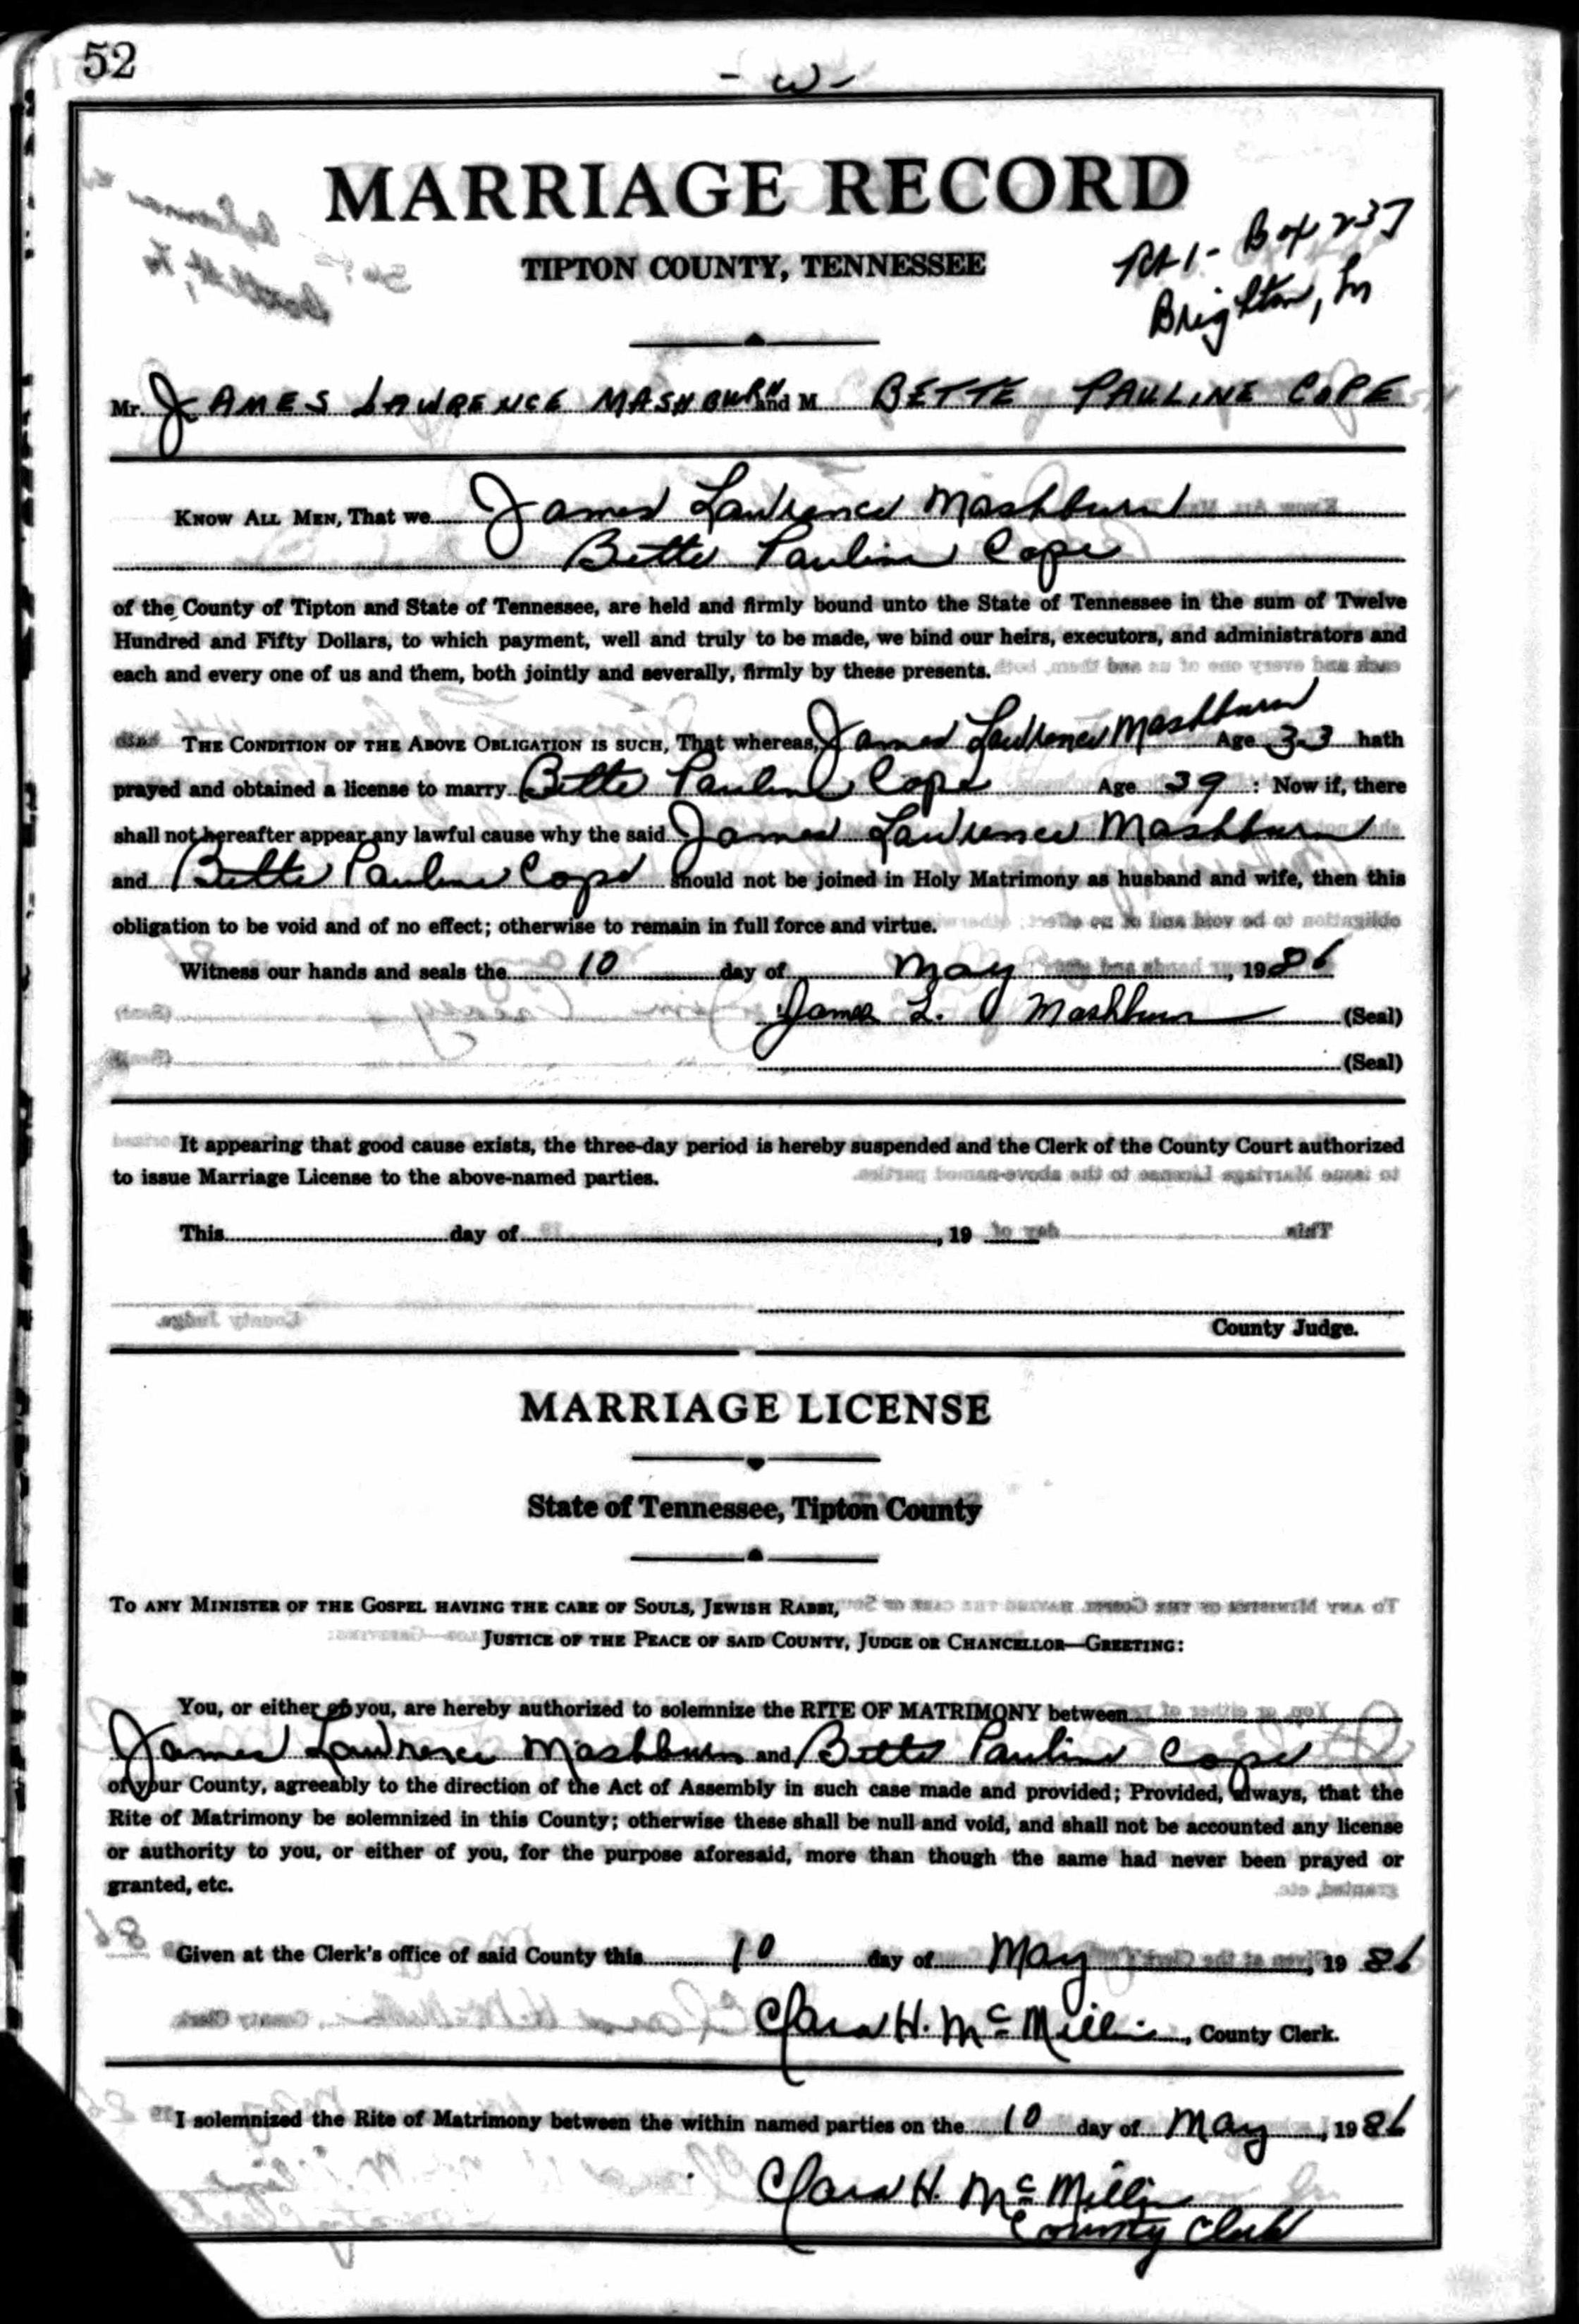 52
- W -
MARRIAGE RECORD
TIPTON COUNTY, TENNESSEE
Rt 1 - Box 237
Brighton, Tn
Mr. JAMES LAWRENCE MASHBURN and M BETTE PAULINE COPE
KNOW ALL MEN, That we James Lawrence Mashburn
Bette Pauline Cope
of the County of Tipton and State of Tennessee, are held and firmly bound unto the State of Tennessee in the sum of Twelve
Hundred and Fifty Dollars, to which payment, well and truly to be made, we bind our heirs, executors, and administrators and
each and every one of us and them, both jointly and severally, firmly by these presents.
THE CONDITION OF THE ABOVE OBLIGATION IS SUCH, That whereas, James Lawrence Mashburn Age 33 hath
prayed and obtained a license to marry Bette Pauline Cope Age 39 : Now if, there
shall not hereafter appear any lawful cause why the said James Lawrence Mashburn
and Bette Pauline Cope should not be joined in Holy Matrimony as husband and wife, then this
obligation to be void and of no effect; otherwise to remain in full force and virtue.
Witness our hands and seals the 10 day of May, 1986
James L. Mashburn (Seal)
(Seal)
It appearing that good cause exists, the three-day period is hereby suspended and the Clerk of the County Court authorized
to issue Marriage License to the above-named parties.
This day of , 19
County Judge.
MARRIAGE LICENSE
State of Tennessee, Tipton County
TO ANY MINISTER OF THE GOSPEL HAVING THE CARE OF SOULS, JEWISH RABBI,
JUSTICE OF THE PEACE OF SAID COUNTY, JUDGE OR CHANCELLOR—GREETING:
You, or either of you, are hereby authorized to solemnize the RITE OF MATRIMONY between
James Lawrence Mashburn and Bette Pauline Cope
of your County, agreeably to the direction of the Act of Assembly in such case made and provided; Provided, always, that the
Rite of Matrimony be solemnized in this County; otherwise these shall be null and void, and shall not be accounted any license
or authority to you, or either of you, for the purpose aforesaid, more than though the same had never been prayed or
granted, etc.
Given at the Clerk's office of said County this 10 day of May, 19 86
Clara H. McMillin, County Clerk.
I solemnized the Rite of Matrimony between the within named parties on the 10 day of May, 1986
Clara H. McMillin
County Clerk